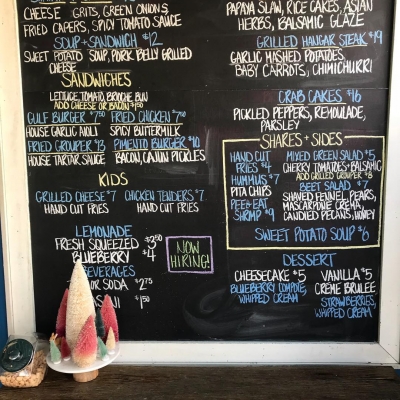 CHEESE GRITS, GREEN ONIONS,
FRIED CAPERS, SPICY TOMATO SAUCE
SOUP + SANDWICH $12
SWEET POTATO SOUP, PORK BELLY GRILLED
CHEESE
SANDWICHES
LETTUCE, TOMATO, BRIOCHE BUN
ADD CHEESE OR BACON $1.50
GULF BURGER $7.50 FRIED CHICKEN $7.50
HOUSE GARLIC AIOLI SPICY BUTTERMILK
FRIED GROUPER $13 PIMENTO BURGER $10
HOUSE TARTAR SAUCE BACON, CAJUN PICKLES
KIDS
GRILLED CHEESE $7 CHICKEN TENDERS $7
HAND CUT FRIES HAND CUT FRIES
LEMONADE
FRESH SQUEEZED $3.50
BLUEBERRY $4
BEVERAGES
OR SODA $2.75
$1.50
NOW
HIRING!
PAPAYA SLAW, RICE CAKES, ASIAN
HERBS, BALSAMIC GLAZE
GRILLED HANGAR STEAK $19
GARLIC MASHED POTATOES
BABY CARROTS, CHIMICHURRI
CRAB CAKES $16
PICKLED PEPPERS, REMOULADE,
PARSLEY
SHARES + SIDES
HAND CUT
FRIES $4
HUMMUS $7
PITA CHIPS
PEEL & EAT
SHRIMP $9
MIXED GREEN SALAD $5
CHERRY TOMATOES + BALSAMIC
ADD GRILLED GROUPER $8
BEET SALAD $7
SHAVED FENNEL, PEARS,
MASCARPONE CREMA,
CANDIED PECANS, HONEY
SWEET POTATO SOUP $6
DESSERT
CHEESECAKE $5
BLUEBERRY COMPOTE,
WHIPPED CREAM
VANILLA $5
CRÈME BRULEE
STRAWBERRIES,
WHIPPED CREAM